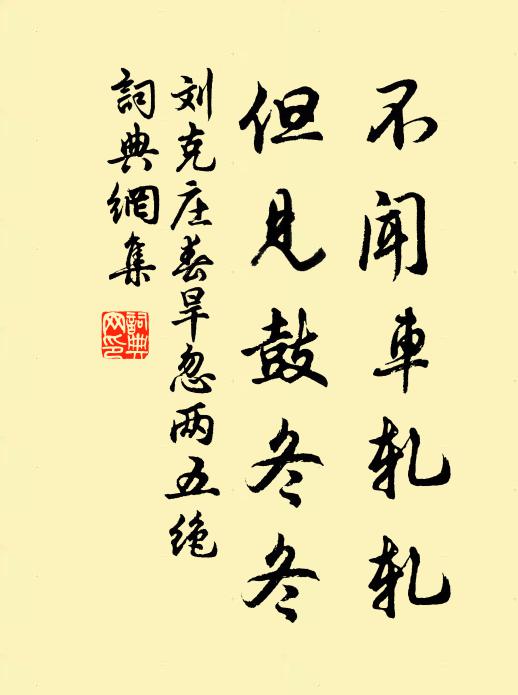 不闻車轧轧
但见鼓冬冬
刘克庄春旱忽两五绝
詞典網集
詞典网印